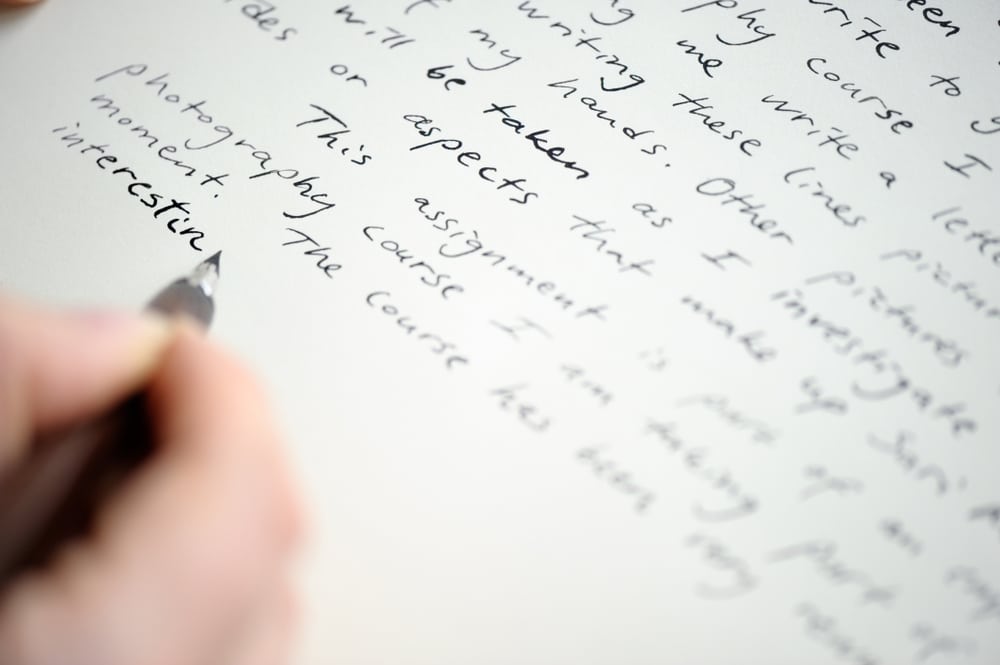 een
write to y
phy course I
me write a lette
writing these lines pictur
my hands. Other pictures
will be taken as I investigate
or aspects that make up Jari
This assignment is part of an
photography course I am taking part of
moment. The course has been very
interestin